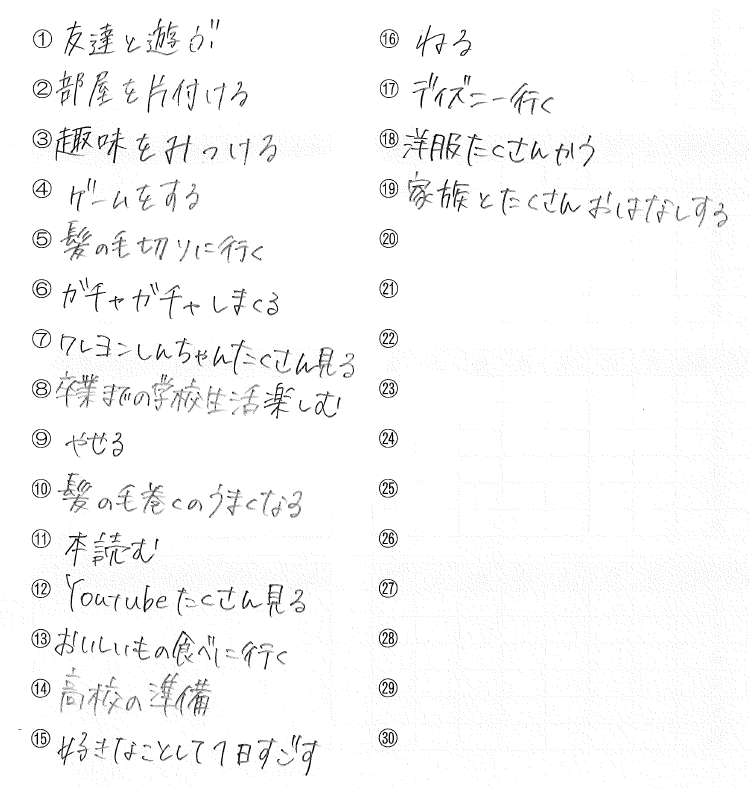 ① 友達と遊ぶ!
② 部屋を片付ける
③ 趣味をみつける
④ ゲームをする
⑤ 髪の毛切りに行く
⑥ ガチャガチャしまくる
⑦ クレヨンしんちゃんたくさん見る
⑧ 卒業までの学校生活楽しむ
⑨ やせる
⑩ 髪の毛巻くのうまくなる
⑪ 本読む
⑫ Youtubeたくさん見る
⑬ おいしいもの食べに行く
⑭ 高校の準備
⑮ 好きなことして1日すごす
⑯ ねる
⑰ ディズニー行く
⑱ 洋服たくさんかう
⑲ 家族とたくさんおはなしする
⑳
㉑
㉒
㉓
㉔
㉕
㉖
㉗
㉘
㉙
㉚